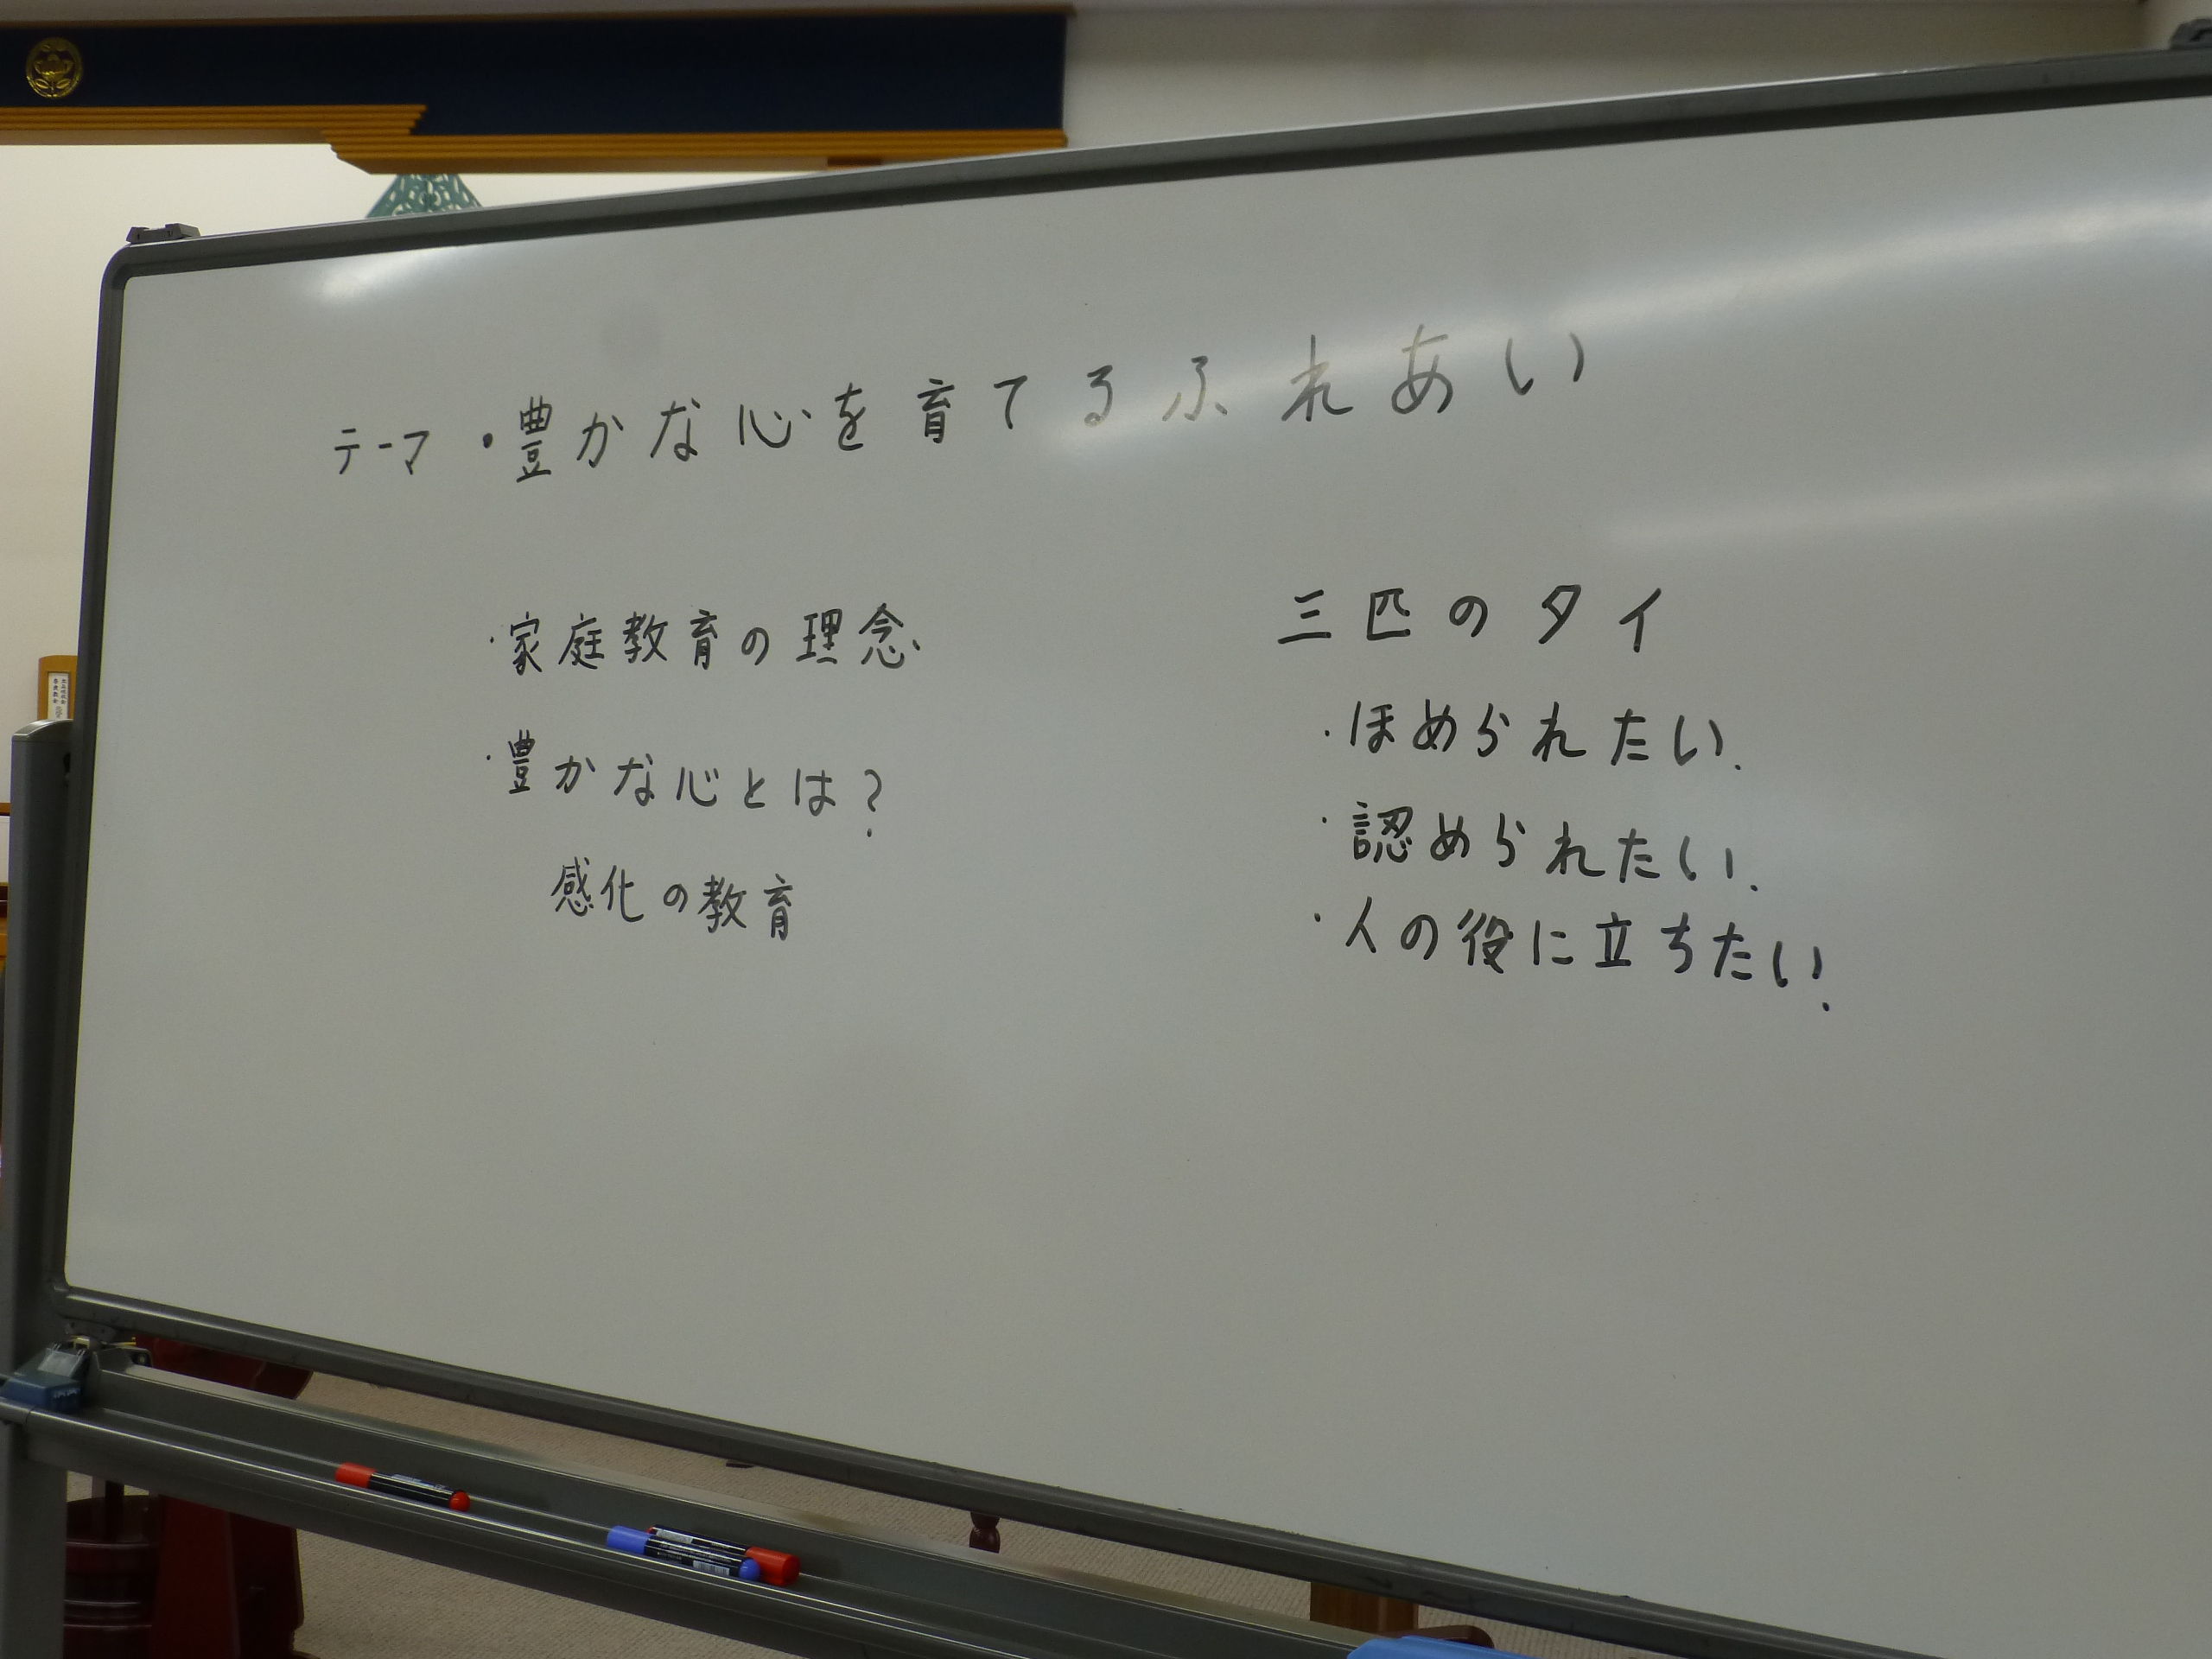 テーマ ・豊かな心を育てるふれあい
・家庭教育の理念
・豊かな心とは?
感化の教育
三匹のタイ
・ほめられたい.
・認められたい.
・人の役に立ちたい.